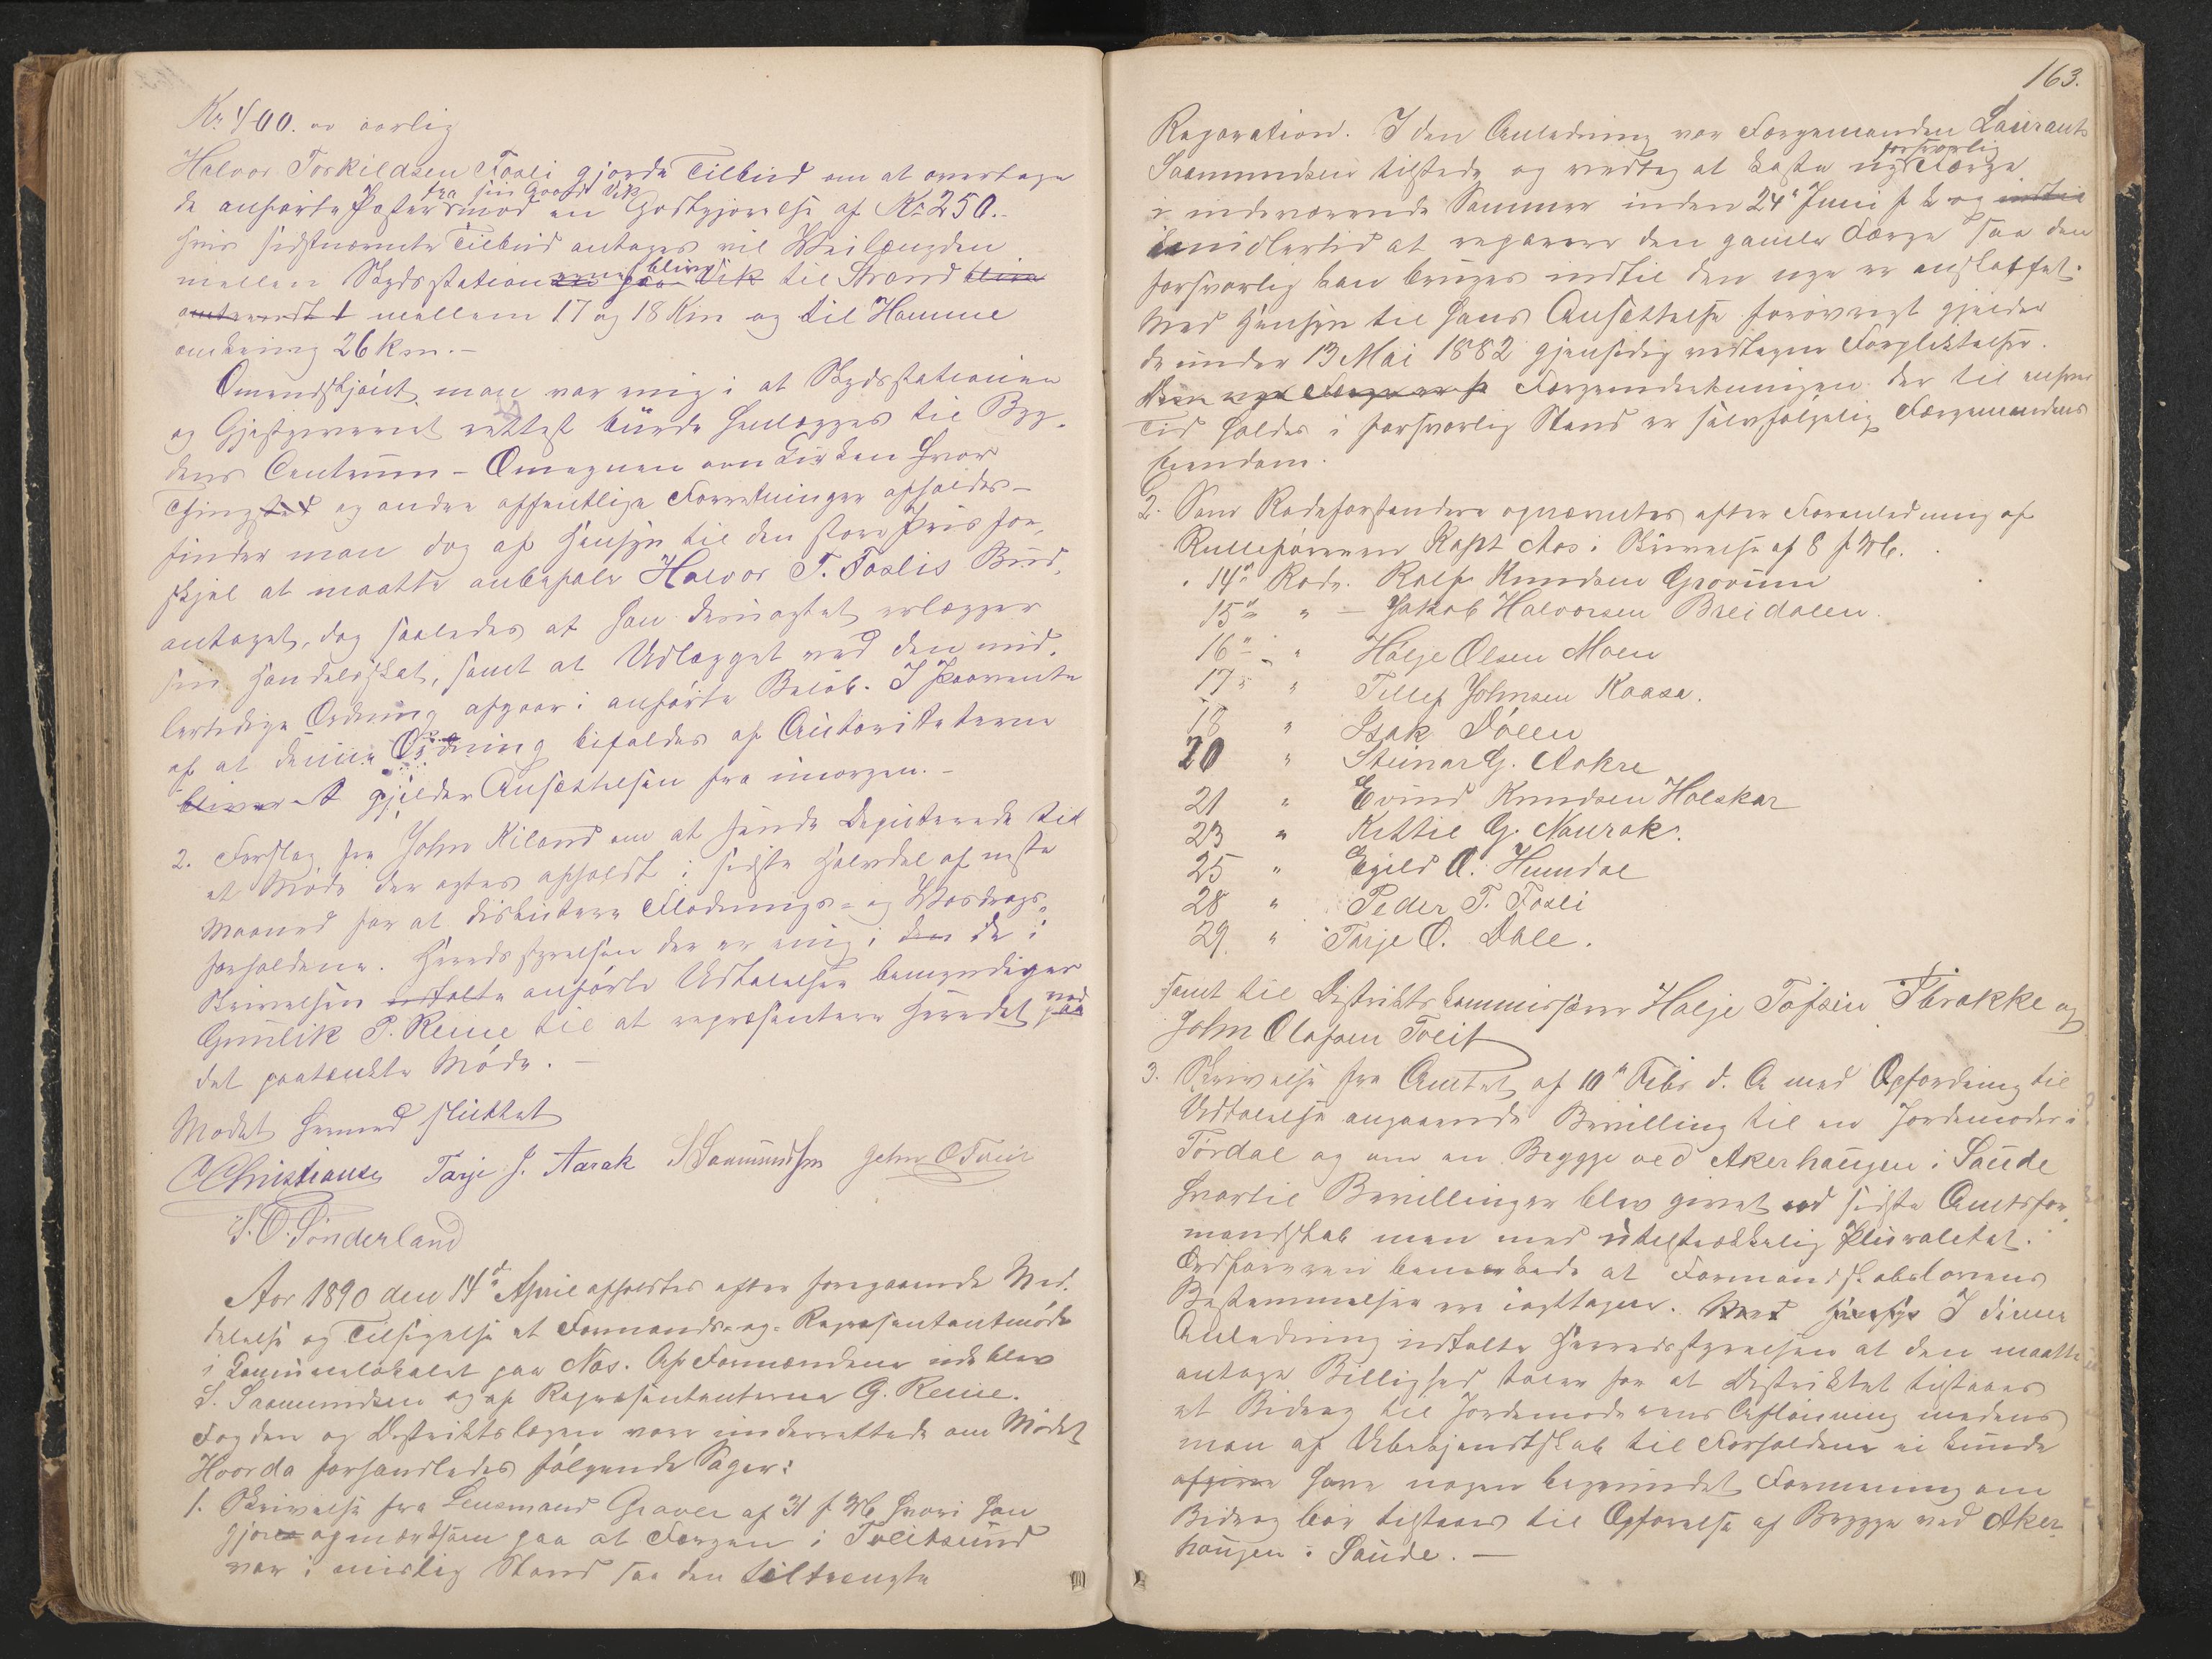 Kr 400. er aarlig
Halvor Torkildsen Fosli gjorde Tilbud om at overtage
de anførte Poster fra sin Gaard Vik mod en Godtgjørelse af Kr 250.-
Hvis sidstnævnte Tilbud antages vil Veilængden
mellem Skydsstationerne blive til Strand
mellem 17 og 18 Km og til Hamme
omkring 26 Km.-
Omendskjønt man var enig i at Skydsstationen
og Gjæstgiveriet rettest burde henlægges til Byg-
dens Centrum - Omegnen om Kirken hvor
Thinget og andre offentlige Forretninger afholdes -
finder man dog af Hensyn til den store Pris for-
skjel at maatte anbefale Halvor T. Foslis Bud
antaget, dog saaledes at han desuagtet erlægger
sin Handelsskat, samt at Udlægget ved den mid-
lertidige Ordning afgaar i anførte Beløb. I Paavente
af at denne Ordning bifaldes af Autoriteterne
gjelder Ansættelsen fra imorgen. -
2. Forslag fra John Kiland om at sende Deputerede til
et Møde der agtes afholdt i sidste Halvdel af næste
Maaned for at diskutere Flødnings- og Vasdrags-
forholdene. Herredsstyrelsen der er enig i den de i
Skrivelsen anførte Udtalelser bemyndiger
Gunlik P. Reine til at repræsentere Herredet ved
det paatænkte Møde. -
Mødet hermed sluttet
C Christiansen Tarje J. Aarak S Saamundsen John O Tveit
S. O. Sønderland
Aar 1890 den 14de April afholdtes efter foregaaende Med-
delelse og Tilsigelse et Formands- og Repræsentantmøde
i Communelokalet paa Næs. Af Formændene udeblev
S. Saamundsen og af Repræsentanterne G. Reine.
Fogden og Distriktslægen vare underrettede om Mødet
Hvorda forhandledes følgende Sager:
1. Skrivelse fra Lensmand Graver af 31 f. M. hvori han
gjør opmærksom paa at Færgen i Tveitsund
var i mislig Stand saa den tiltrængte
163.
Reparation. I den Anledning var Færgemanden Laurants
Saamundsen tilstede og vedtog at koste ny forsvarlig Færge
i indeværende Sommer inden 24de Juni f. k. og
imidlertid at reparere den gamle Færge saa den
forsvarlig kan bruges indtil den nye er anskaffet.
Med Hensyn til hans Ansættelse forøvrigt gjelder
de under 13 Mai 1882 gjensidig vedtagne Forpliktelser.
Færgeindretningen der til enhver
Tid holdes i forsvarlig Stand er selvfølgelig Færgemandens
Eiendom.
2. Som Rodeforstandere opnævntes efter Foranledning af
Rulleføreren Kapt Aas i Skrivelse af 8 f. M.
14de Rode. Rolf Knudsen Grovum
15de " - Jakob Halvorsen Breidalen.
16de " Hølje Olsen Moen
17de " Tellef Johnsen Kaasa.
18 " Isak Døllen
20 " Steinar G. Aakre
21 " Evind Knudsen Holskar
23 " Kittil G. Naurak.
25 " Egild O. Humdal
28 " Peder T. Fosli
29 " Tarje O. Dale.
samt til Distriktskommissærer Halje Tofsen Thrakke og
John Olafsen Tveit
3. Skrivelse fra Amtet af 10de Febr d. A. med Opfordring til
Udtalelse angaaende Bevilling til en Jordemoder i
Tørdal og om en Brygge ved Akerhaugen i Saude
hvortil Bevillinger blev givet ved sidste Amtsfor-
mandskab men med utilstrækkelig Pluralitet.
Ordføreren bemærkede at Formandskabslovens
Bestemmelser ere iagttagne. I denne
Anledning udtalte Herredsstyrelsen at den maatte
antage Billighed taler for at Distriktet tilstaaes
et Bidrag til Jordemoderens Aflønning medens
man af Ubekjendtskab til Forholdene ei kunde
have nogen begrundet Formening om
Bidrag bør tilstaaes til Opførelse af Brygge ved Aker-
haugen i Saude. -